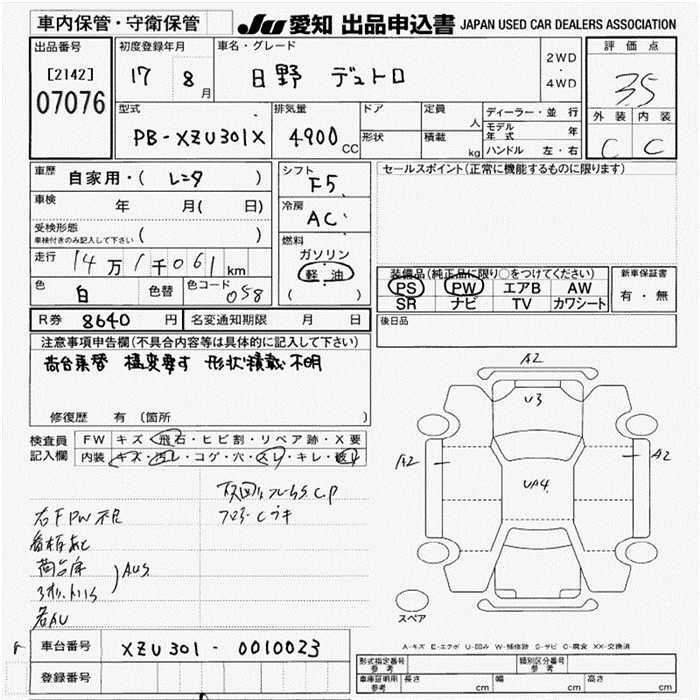 車内保管・守衛保管
JU 愛知 出品申込書 JAPAN USED CAR DEALERS ASSOCIATION
出品番号
[2142]
07076
初度登録年月
17 年 8 月
車名・グレード
日野 デュトロ
2WD
・
4WD
評価点
3.5
外装 内装
C C
型式
PB-XZU301X
排気量
4900 CC
ドア
形状
定員
人
積載
kg
ディーラー・並行
モデル年式 年
ハンドル 左・右
車歴
自家用・( レンタ )
車検 年 月( 日)
受検形態
車検付きのみ記入して下さい ( )
走行 14万1千061 km
色 白 色替 色コード 058
シフト
F5
冷房
AC
燃料
ガソリン
軽油
( )
セールスポイント(正常に機能するものに限ります)
装備品(純正品に限り○をつけてください)
PS PW エアB AW
SR ナビ TV カワシート
新車保証書
有・無
R券 8640 円 名変通知期限 月 日
後日品
注意事項申告欄(不具合内容等は具体的に記入して下さい)
荷台乗替 構変要す 形状積載不明
修復歴 有 (箇所 )
検査員記入欄
FW キズ・飛石・ヒビ割・リペア跡・X要
内装 キズ・汚レ・コゲ・穴・スレ・キレ・破レ
右FPW不良
看板あと
荷台床
AUS
A2
U3
A2
A2
UA4
スペア
A-キズ E-エクボ U-凹み W-補修跡 S-サビ C-腐食 XX-交換済
車台番号 XZU301-0010023
登録番号
形式指定番号 参考
類別区分番号 参考
車庫証明用 参考 長さ cm 幅 cm 高さ cm